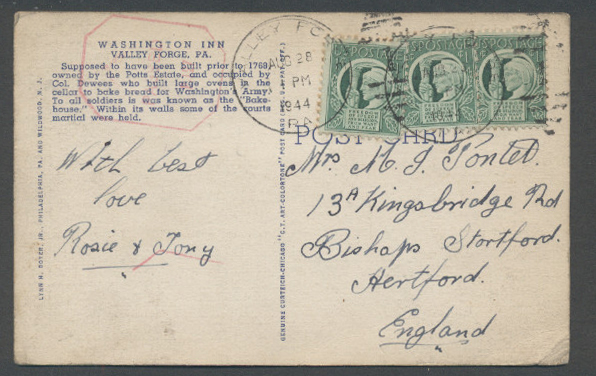 WASHINGTON INN
VALLEY FORGE, PA.
Supposed to have been built prior to 1768,
owned by the Potts Estate, and occupied by
Col. Dewees who built large ovens in the
cellar to bake bread for Washington's Army.
To all soldiers is was known as the "Bake-
house." Within its walls some of the courts
martial were held.
With best
love
Rosie & Tony
LYNN H. BOYER, JR., PHILADELPHIA, PA. AND WILDWOOD, N. J.
GENUINE CURTEICH-CHICAGO "C.T. ART-COLORTONE" POST CARD (REG. U.S. PAT. OFF.)
AUG 28
PM
1944
PA.
POSTAGE
POST CARD
Mrs M. J. Pontet.
13A Kingsbridge Rd
Bishops Stortford.
Hertford.
England